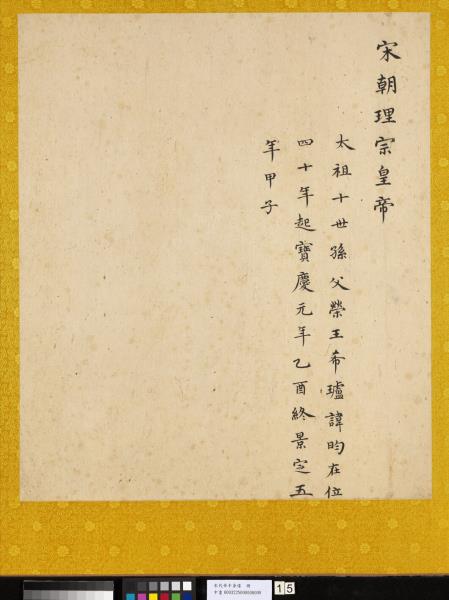 宋朝理宗皇帝
太祖十世孫父榮王希瓐諱昀在位
四十年起寶慶元年乙酉終景定五
年甲子
15